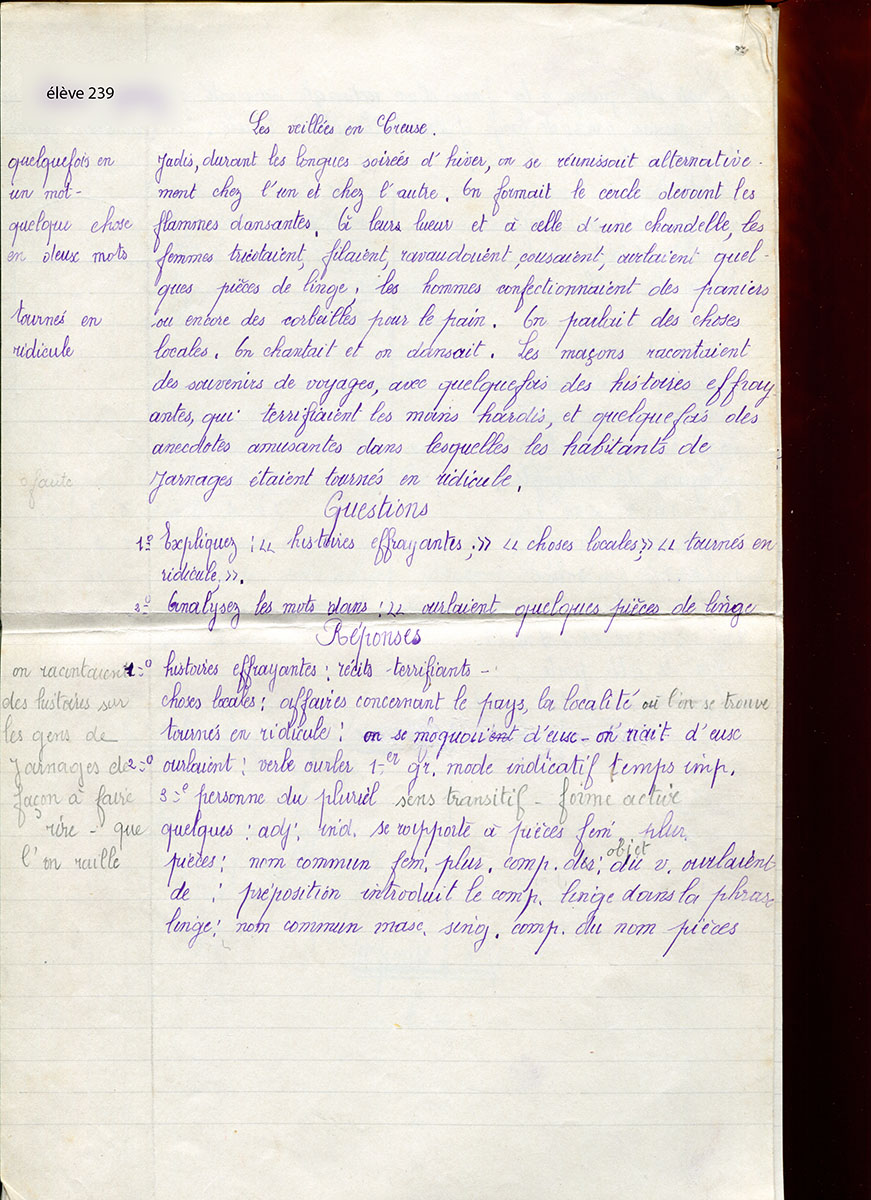 élève 239
Les veillées en Creuse.
quelquefois en
un mot-
quelque chose
en deux mots
tournés en
ridicule
Jadis, durant les longues soirées d'hiver, on se réunissait alternative-
ment chez l'un et chez l'autre. On formait le cercle devant les
flammes dansantes. A leurs lueur et à celle d'une chandelle, les
femmes tricotaient, filaient, ravaudaient, cousaient, ourlaient quel-
ques pièces de linge; les hommes confectionnaient des paniers
ou encore des corbeilles pour le pain. On parlait des choses
locales. On chantait et on dansait. Les maçons racontaient
des souvenirs de voyages, avec quelquefois des histoires effray-
antes, qui terrifiaient les moins hardis, et quelquefois des
anecdotes amusantes dans lesquelles les habitants de
Jarnages étaient tournés en ridicule.
faute
Questions
1º Expliquez : « histoires effrayantes ; » « choses locales ; » « tournés en
ridicule ; ».
2º Analysez les mots dans : « ourlaient quelques pièces de linge
Réponses
1º histoires effrayantes : récits terrifiants -
choses locales : affaires concernant le pays, la localité où l'on se trouve
tournés en ridicule : on se moquait d'eux - on riait d'eux
2º ourlaient : verbe ourler 1er gr. mode indicatif temps imp.
3e personne du pluriel sens transitif - forme active
quelques : adj. ind. se rapporte à pièces fém. plur.
objet
pièces : nom commun fem. plur. comp. dir. du v. ourlaient
de : préposition introduit le comp. linge dans la phrase
linge : nom commun masc. sing. comp. du nom pièces
on racontaient
des histoires sur
les gens de
Jarnages de
façon à faire
rire - que
l'on raille